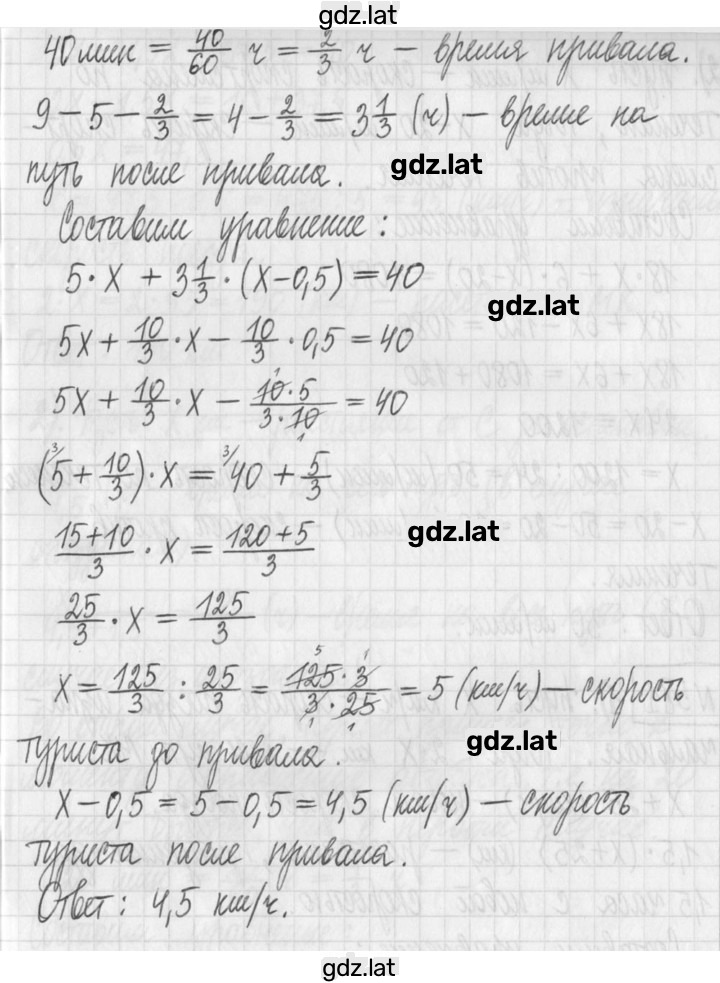 gdz.lat
40 мин = 40/60 ч = 2/3 ч – время привала.
9 – 5 – 2/3 = 4 – 2/3 = 3 1/3 (ч) – время на
путь после привала. gdz.lat
Составим уравнение:
5 · x + 3 1/3 · (x – 0,5) = 40
gdz.lat
5x + 10/3 · x – 10/3 · 0,5 = 40
5x + 10/3 · x – 10 · 5/3 · 10 = 40
(5 + 10/3) · x = 40 + 5/3
15 + 10/3 · x = 120 + 5/3 gdz.lat
25/3 · x = 125/3
x = 125/3 : 25/3 = 125 · 3/3 · 25 = 5 (км/ч) – скорость
туриста до привала. gdz.lat
x – 0,5 = 5 – 0,5 = 4,5 (км/ч) – скорость
туриста после привала.
Ответ: 4,5 км/ч.
gdz.lat